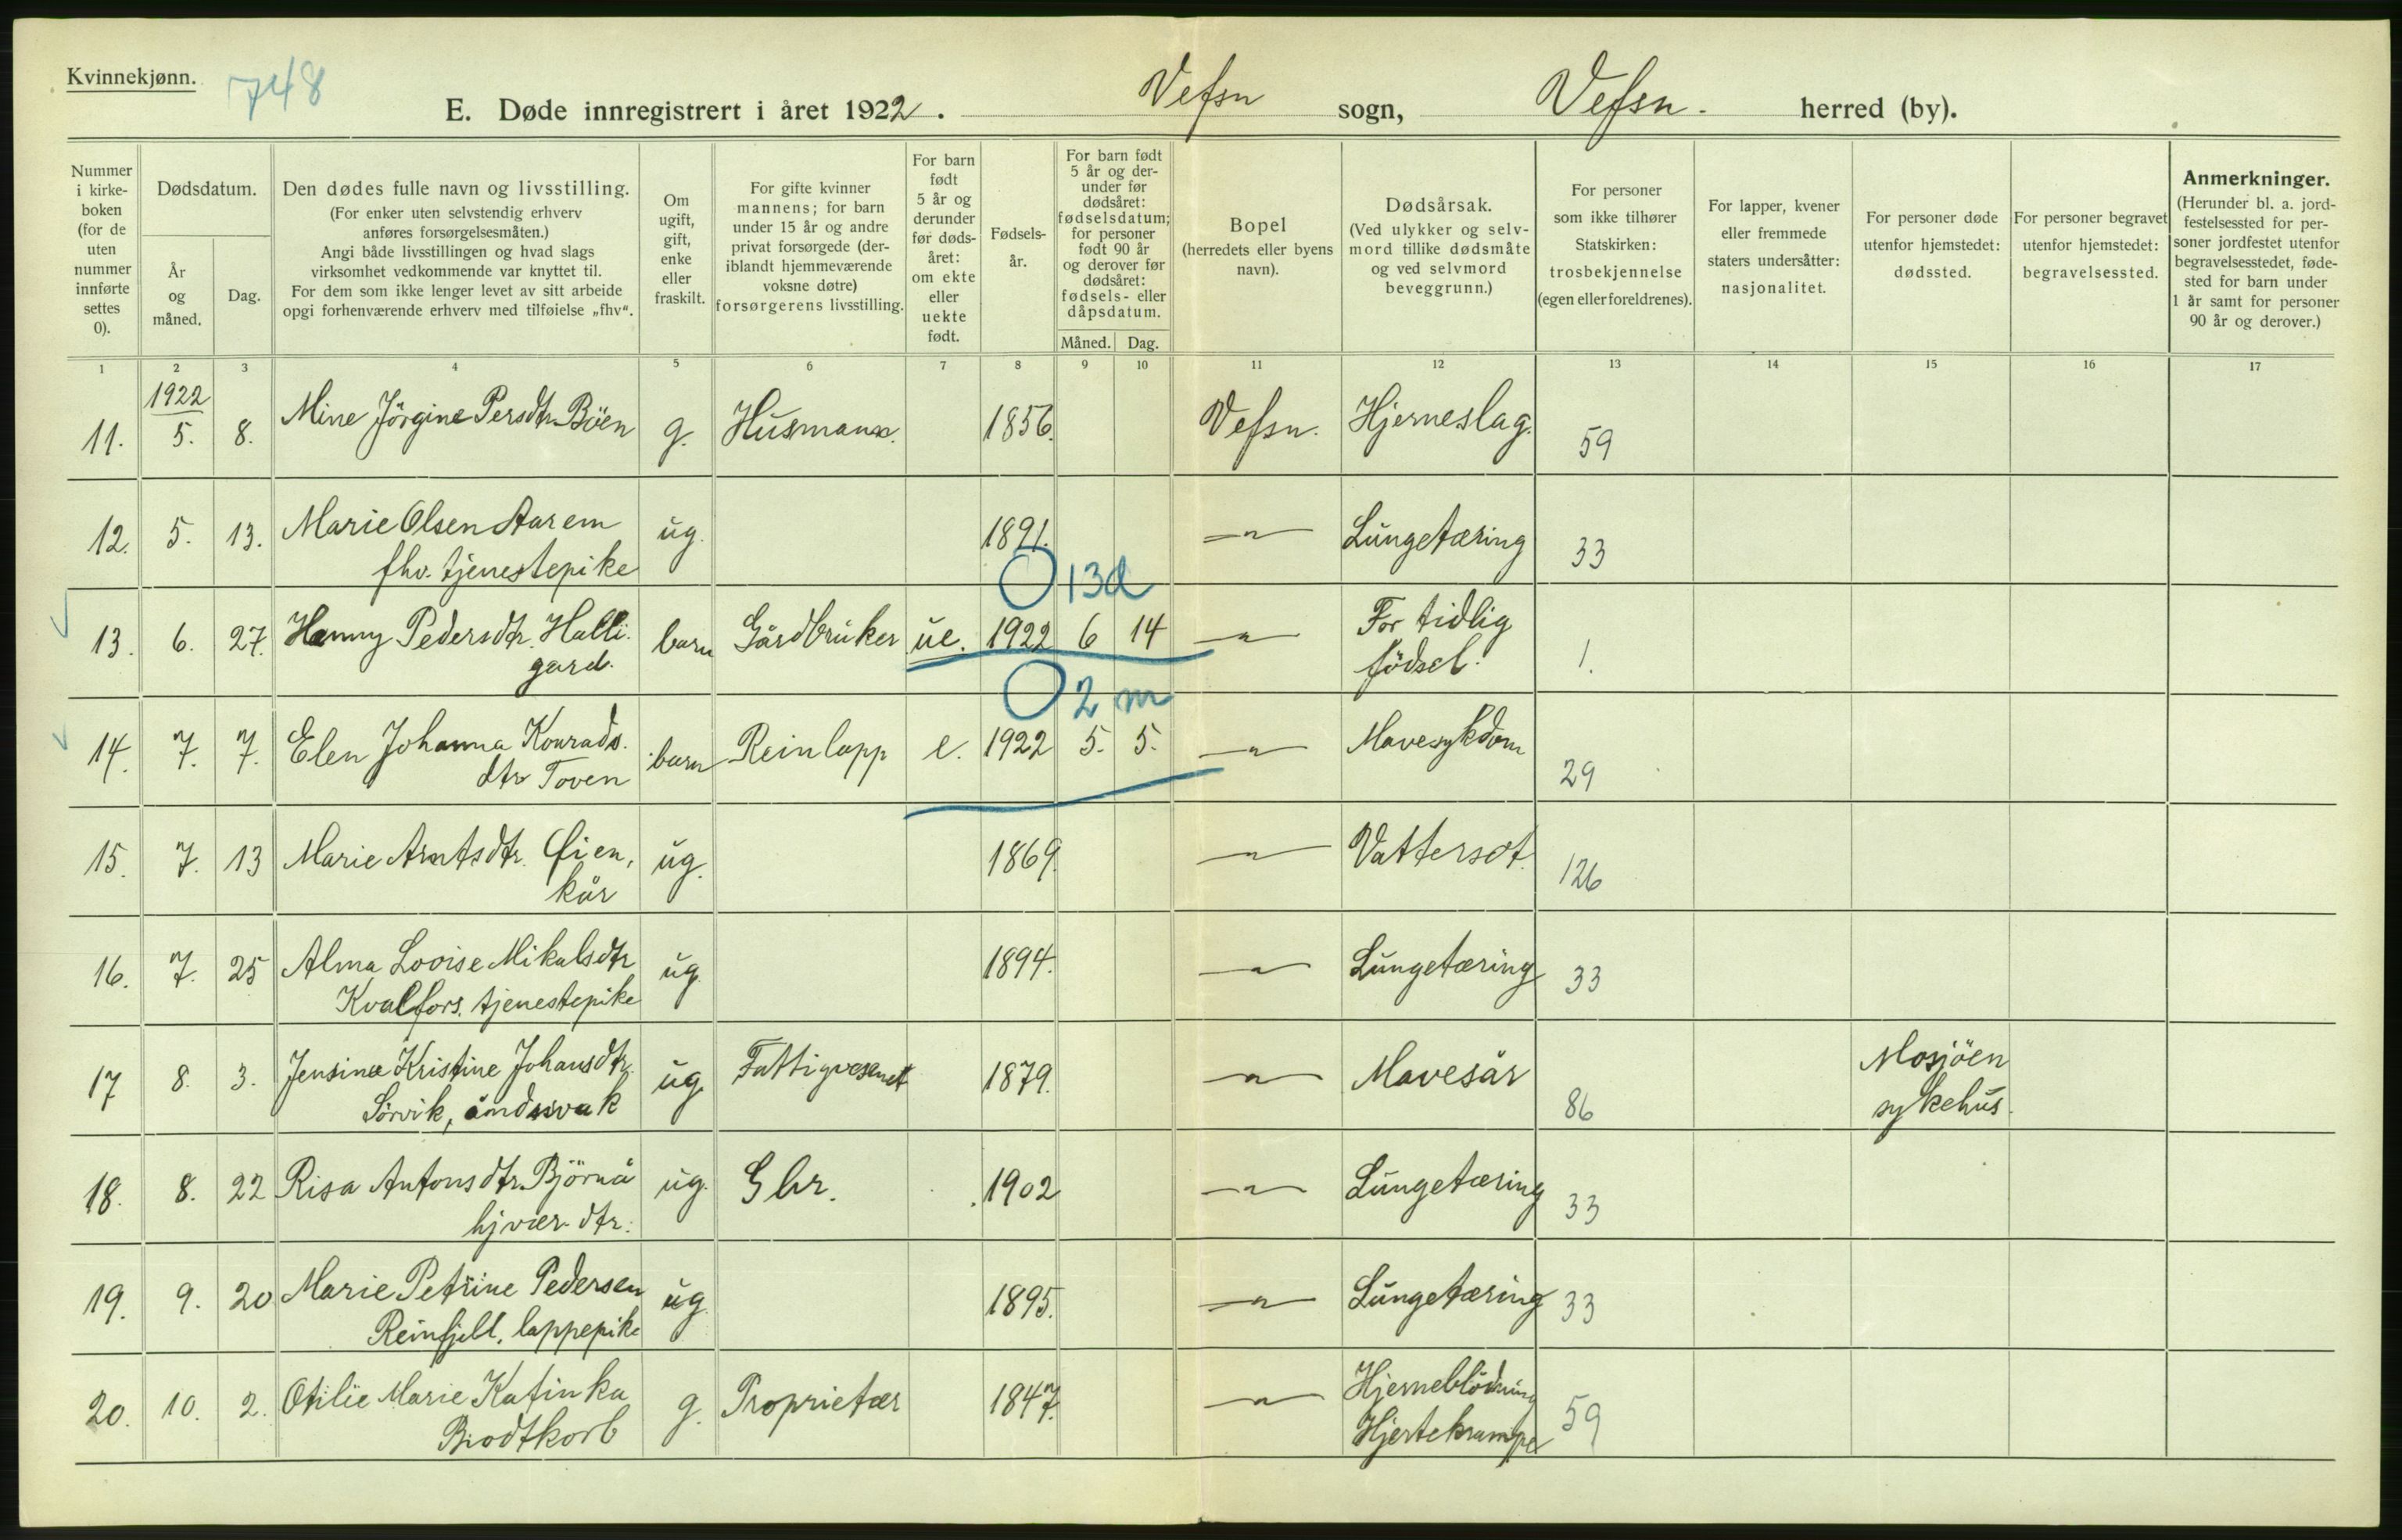 Kvinnekjønn.
748
E. Døde innregistrert i året 1922. Vefsn sogn, Vefsn. herred (by).
Nummer i kirke-boken (for de uten nummer innførte settes 0).
Dødsdatum.
År og måned.
Dag.
Den dødes fulle navn og livsstilling.
(For enker uten selvstendig erhverv anføres forsørgelsesmåten.)
Angi både livsstillingen og hvad slags virksomhet vedkommende var knyttet til.
For dem som ikke lenger levet av sitt arbeide opgi forhenværende erhverv med tilføielse „fhv“.
Om ugift, gift, enke eller fraskilt.
For gifte kvinner mannens; for barn under 15 år og andre privat forsørgede (der-iblandt hjemmeværende voksne døtre) forsørgerens livsstilling.
For barn født 5 år og derunder før døds-året: om ekte eller uekte født.
Fødsels-år.
For barn født 5 år og der-under før dødsåret: fødselsdatum; for personer født 90 år og derover før dødsåret: fødsels- eller dåpsdatum.
Måned. Dag.
Bopel (herredets eller byens navn).
Dødsårsak.
(Ved ulykker og selv-mord tillike dødsmåte og ved selvmord beveggrunn.)
For personer som ikke tilhører Statskirken: trosbekjennelse (egen eller foreldrenes).
For lapper, kvener eller fremmede staters undersåtter: nasjonalitet.
For personer døde utenfor hjemstedet: dødssted.
For personer begravet utenfor hjemstedet: begravelsessted.
Anmerkninger.
(Herunder bl. a. jord-festelsessted for per-soner jordfestet utenfor begravelsesstedet, føde-sted for barn under 1 år samt for personer 90 år og derover.)
1 2 3 4 5 6 7 8 9 10 11 12 13 14 15 16 17
1922
11. 5. 8. Mine Jörgine Persdtr. Böen g. Husmann. 1856. Vefsn. Hjerneslag. 59
12. 5. 13. Marie Olsen Aarem ug. 1891. —"— Lungetæring 33
fhv. tjenestepike
13d
13. 6. 27. Hanny Pedersdtr. Halli- barn Gårdbruker ue. 1922 6 14 —"— For tidlig 1.
gard. födsel.
2 m
14. 7. 7. Elen Johanna Konrads- barn Reinlapp e. 1922 5. 5. —"— Mavesykdom 29
dtr Toven
15. 7. 13 Marie Arntsdtr. Øien, ug. 1869. —"— Vattersot. 126
kår
16. 7. 25 Alma Lovise Mikalsdtr ug. 1894. —"— Lungetæring 33
Kvalfors. tjenestepike
17 8. 3. Jensine Kristine Johansdtr. ug. Fattigvesenet 1879. —"— Mavesår 86 Mosjöen
Sörvik, åndssvak sykehus.
18. 8. 22 Risa Antonsdtr. Björnå ug. Gbr. 1902 —"— Lungetæring 33
hjvær. dtr.
19. 9. 20 Marie Petrine Pedersen ug. 1895. —"— Lungetæring 33
Reinfjell. lappepike
20. 10. 2. Otilie Marie Katinka g. Proprietær 1847. —"— Hjerneblödning 59
Brodtkorb Hjertekrampe